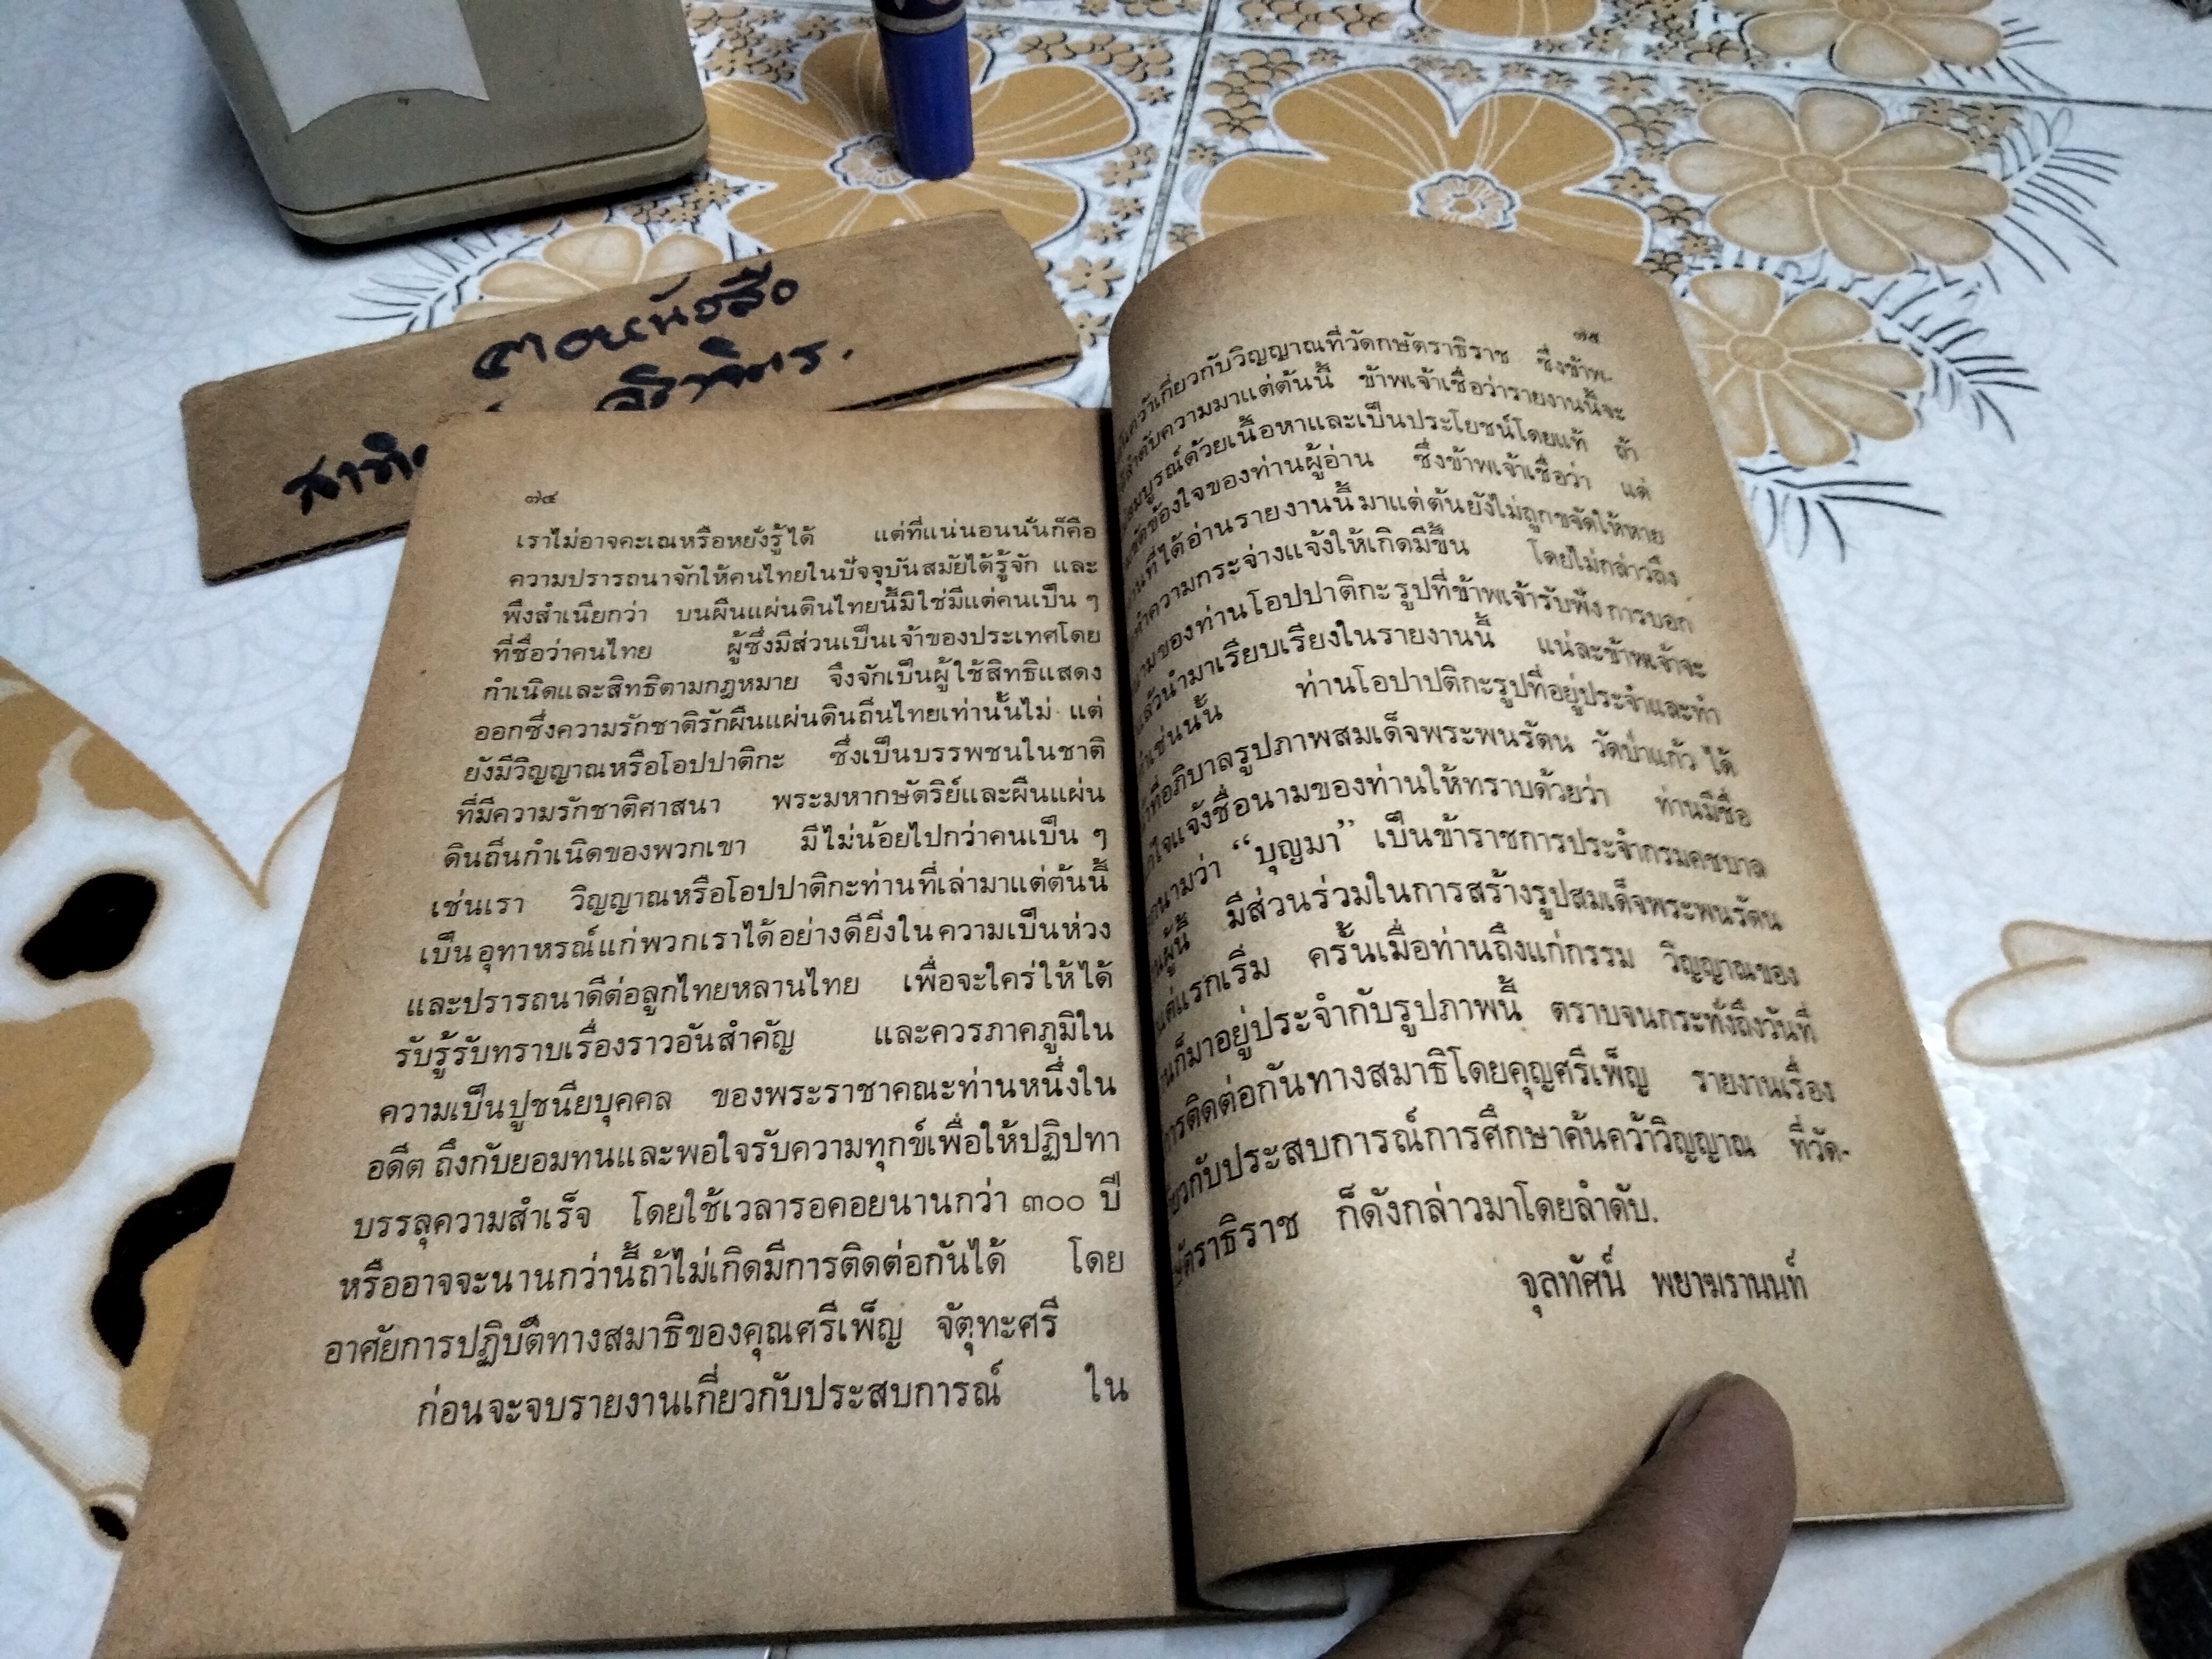 ๗๔
เราไม่อาจคะเณหรือหยั่งรู้ได้ แต่ที่แน่นอนนั่นก็คือ
ความปรารถนาจักให้คนไทยในปัจจุบันสมัยได้รู้จัก และ
พึงสำเนียกว่า บนผืนแผ่นดินไทยนี้มิใช่มีแต่คนเป็น ๆ
ที่ชื่อว่าคนไทย ผู้ซึ่งมีส่วนเป็นเจ้าของประเทศโดย
กำเนิดและสิทธิตามกฎหมาย จึงจักเป็นผู้ใช้สิทธิแสดง
ออกซึ่งความรักชาติรักผืนแผ่นดินถิ่นไทยเท่านั้นไม่ แต่
ยังมีวิญญาณหรือโอปปาติกะ ซึ่งเป็นบรรพชนในชาติ
ที่มีความรักชาติศาสนา พระมหากษัตริย์และผืนแผ่น
ดินถิ่นกำเนิดของพวกเขา มีไม่น้อยไปกว่าคนเป็น ๆ
เช่นเรา วิญญาณหรือโอปปาติกะท่านที่เล่ามาแต่ต้นนี้
เป็นอุทาหรณ์แก่พวกเราได้อย่างดียิ่งในความเป็นห่วง
และปรารถนาดีต่อลูกไทยหลานไทย เพื่อจะใคร่ให้ได้
รับรู้รับทราบเรื่องราวอันสำคัญ และควรภาคภูมิใน
ความเป็นปูชนียบุคคล ของพระราชาคณะท่านหนึ่งใน
อดีต ถึงกับยอมทนและพอใจรับความทุกข์เพื่อให้ปฏิปทา
บรรลุความสำเร็จ โดยใช้เวลารอคอยนานกว่า ๓๐๐ ปี
หรืออาจจะนานกว่านี้ถ้าไม่เกิดมีการติดต่อกันได้ โดย
อาศัยการปฏิบัติทางสมาธิของคุณศรีเพ็ญ จัตุทะศรี
ก่อนจะจบรายงานเกี่ยวกับประสบการณ์ ใน
๗๕
เกี่ยวกับวิญญาณที่วัดกษัตราธิราช ซึ่งข้าพ-
ลำดับความมาแต่ต้นนี้ ข้าพเจ้าเชื่อว่ารายงานนี้จะ
สมบูรณ์ด้วยเนื้อหาและเป็นประโยชน์โดยแท้ ถ้า
ขัดข้องใจของท่านผู้อ่าน ซึ่งข้าพเจ้าเชื่อว่า แต่
ที่ได้อ่านรายงานนี้มาแต่ต้นยังไม่ถูกขจัดให้หาย
ความกระจ่างแจ้งให้เกิดมีขึ้น โดยไม่กล่าวถึง
นามของท่านโอปปาติกะรูปที่ข้าพเจ้ารับฟังการบอก
แล้วนำมาเรียบเรียงในรายงานนี้ แน่ละข้าพเจ้าจะ
เช่นนั้น ท่านโอปาปติกะรูปที่อยู่ประจำและทำ
ที่อภิบาลรูปภาพสมเด็จพระพนรัตน วัดป่าแก้ว ได้
ใจแจ้งชื่อนามของท่านให้ทราบด้วยว่า ท่านมีชื่อ
นามว่า “บุญมา” เป็นข้าราชการประจำกรมคชบาล
ผู้นี้ มีส่วนร่วมในการสร้างรูปสมเด็จพระพนรัตน
แต่แรกเริ่ม ครั้นเมื่อท่านถึงแก่กรรม วิญญาณของ
ก็มาอยู่ประจำกับรูปภาพนี้ ตราบจนกระทั่งถึงวันที่
การติดต่อกันทางสมาธิโดยคุญศรีเพ็ญ รายงานเรื่อง
ประสบการณ์การศึกษาค้นคว้าวิญญาณ ที่วัด-
ก็ดังกล่าวมาโดยลำดับ.
จุลทัศน์ พยาฆรานนท์